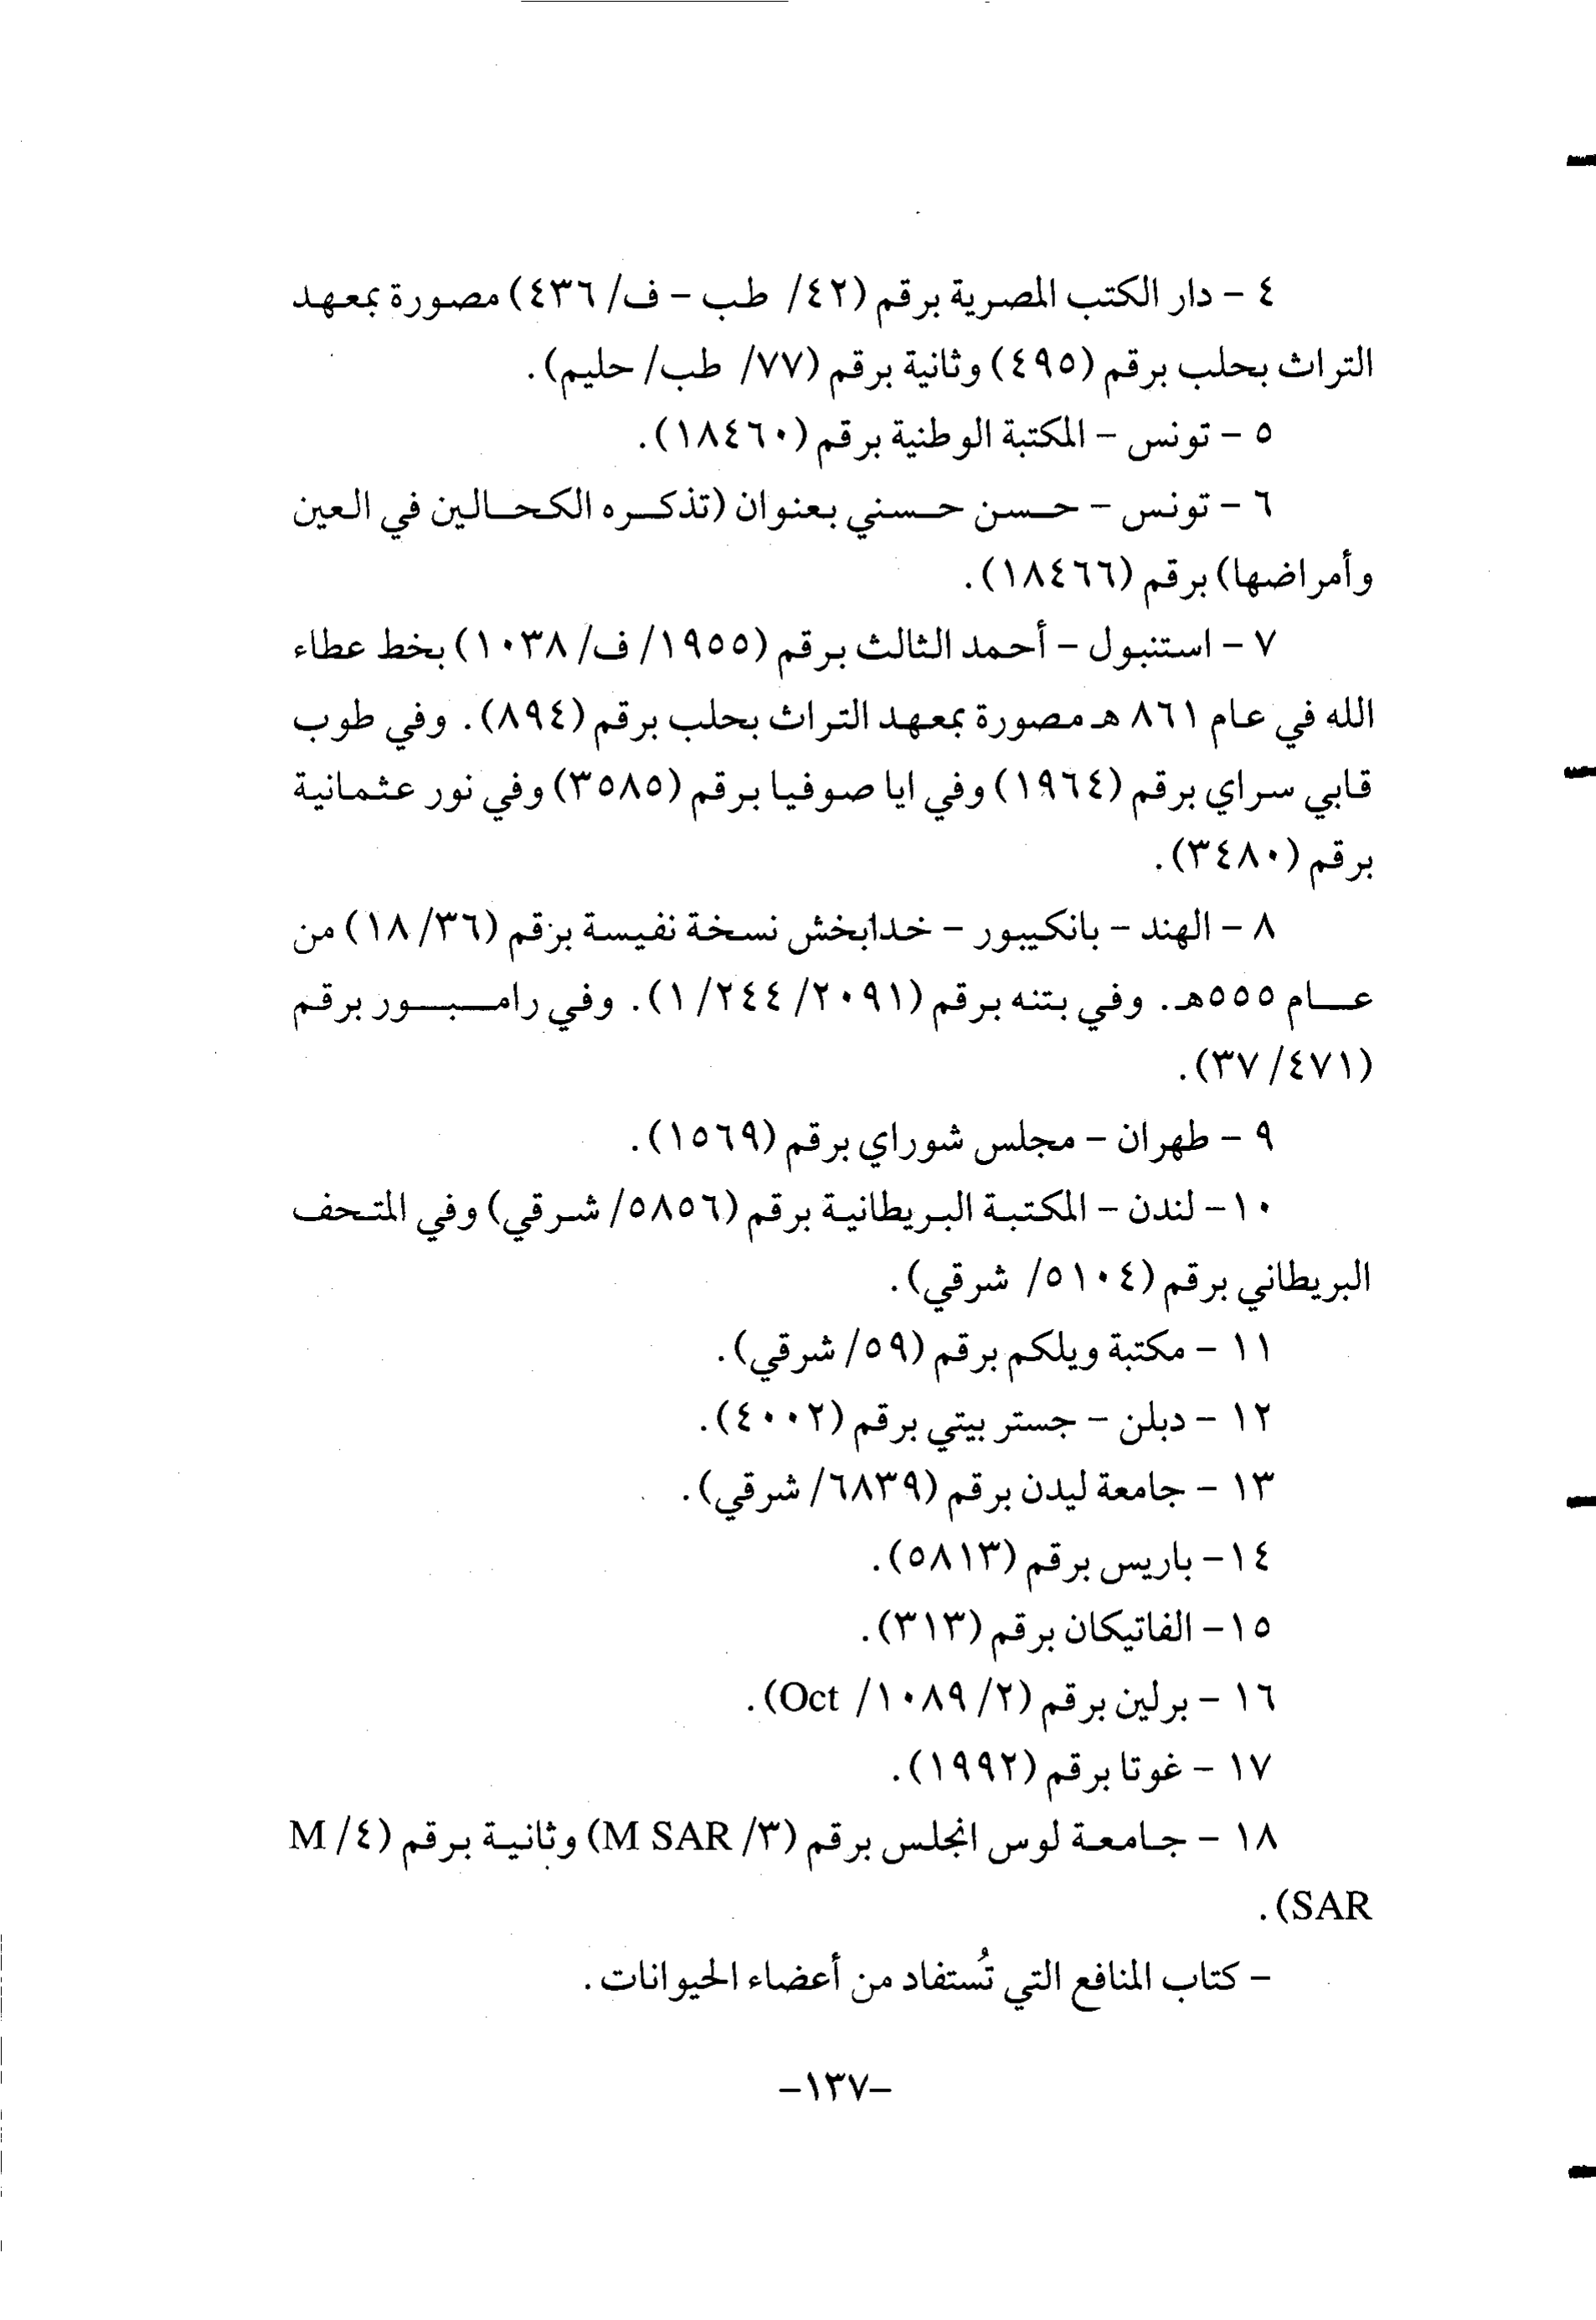 ٤ - دار الكتب المصرية برقم (٤٢/ طب - ف/ ٤٣٦) مصورة بمعهد
التراث بحلب برقم (٤٩٥) وثانية برقم (٧٧/ طب/ حليم).
٥ - تونس - المكتبة الوطنية برقم (١٨٤٦٠).
٦ - تونس - حسن حسني بعنوان (تذكره الكحالين في العين
وأمراضها) برقم (١٨٤٦٦).
٧ - استنبول - أحمد الثالث برقم (١٩٥٥/ ف/ ١٠٣٨) بخط عطاء
الله في عام ٨٦١ هـ مصورة بمعهد التراث بحلب برقم (٨٩٤). وفي طوب
قابي سراي برقم (١٩٦٤) وفي ايا صوفيا برقم (٣٥٨٥) وفي نور عثمانية
برقم (٣٤٨٠).
٨ - الهند - بانكيبور - خدابخش نسخة نفيسة برقم (٣٦/ ١٨) من
عام ٥٥٥هـ. وفي بتنه برقم (٢٠٩١/ ٢٤٤/ ١). وفي رامبور برقم
(٤٧١/ ٣٧).
٩ - طهران - مجلس شوراي برقم (١٥٦٩).
١٠- لندن - المكتبة البريطانية برقم (٥٨٥٦/ شرقي) وفي المتحف
البريطاني برقم (٥١٠٤/ شرقي).
١١ - مكتبة ويلكم برقم (٥٩/ شرقي).
١٢ - دبلن - جستر بيتي برقم (٤٠٠٢).
١٣ - جامعة ليدن برقم (٦٨٣٩/ شرقي).
١٤- باريس برقم (٥٨١٣).
١٥- الفاتيكان برقم (٣١٣).
١٦ - برلين برقم (٢/ ١٠٨٩/ Oct).
١٧ - غوتا برقم (١٩٩٢).
١٨ - جامعة لوس انجلس برقم (٣/ M SAR) وثانية برقم (٤/ M
SAR).
- كتاب المنافع التي تُستفاد من أعضاء الحيوانات.
-١٣٧-